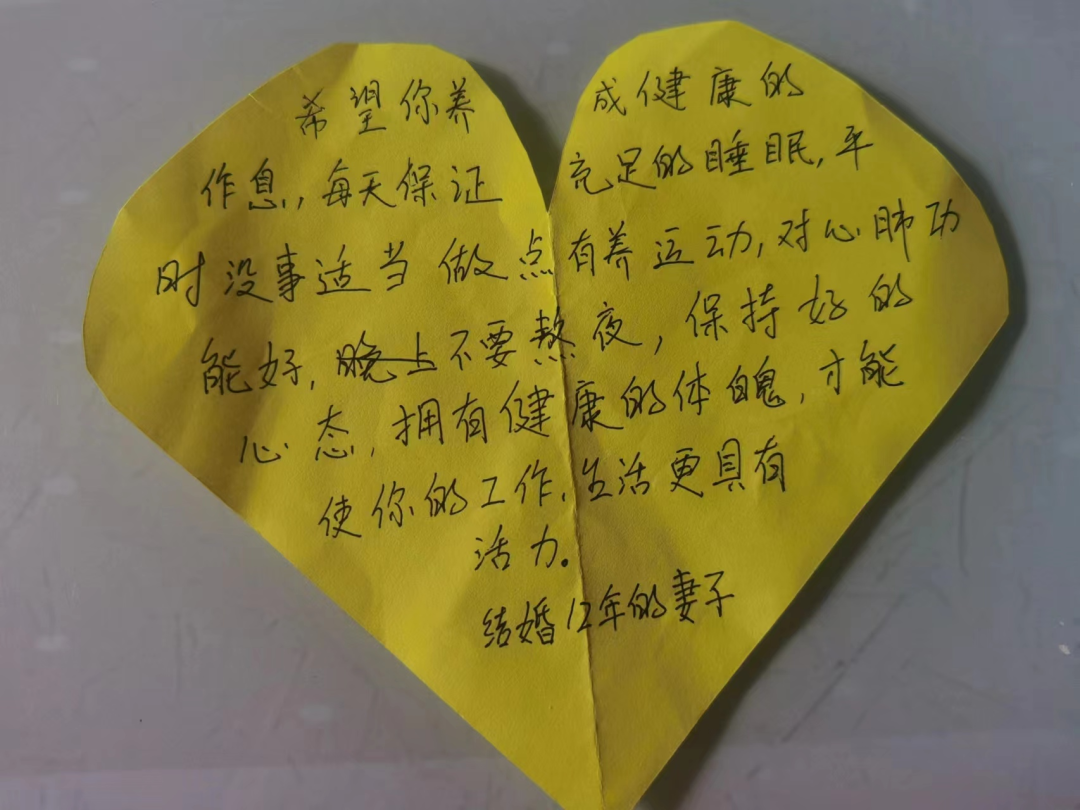 希望你养成健康的
作息,每天保证充足的睡眠,平
时没事适当做点有养运动,对心肺功
能好,晚上不要熬夜,保持好的
心态,拥有健康的体魄,才能
使你的工作、生活更具有
活力。
结婚12年的妻子